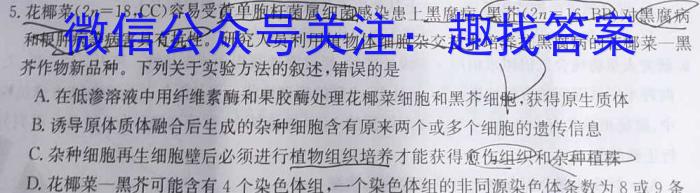 5.花椰菜(2n=18,CC)容易受黄单胞杆菌属细菌感染患上黑腐病,黑芥(2n=16,BB)对黑腐病
微信公众号关注:趣找答案
芥作物新品种。下列关于实验方法的叙述,错误的是
A.在低渗溶液中用纤维素酶和果胶酶处理花椰菜细胞和黑芥细胞,获得原生质体
B.诱导原体质体融合后生成的杂种细胞含有原来两个或多个细胞的遗传信息
C.杂种细胞再生细胞壁后必须进行植物组织培养才能获得愈伤组织和杂种植株
D.花椰菜—黑芥可能含有4个染色体组,一个染色体组的非同源染色体条数为8或9条